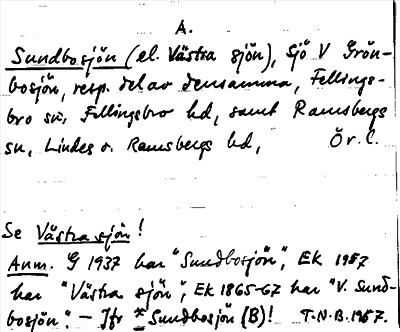 A.
Sundbosjön (el. Västra sjön), sjö V Grön-
bosjön, resp. del av densamma, Fellings-
bro sn, Fellingsbro hd, samt Ramsbergs
sn, Lindes o. Ramsbergs hd, Ör. l.
Se Västra sjön!
Anm. G 1937 har "Sundbosjön", EK 1957
har "Västra sjön", EK 1865-67 har "V. Sund-
bosjön". – Jfr *Sundbosjön (B)! T.N.B. 1967.